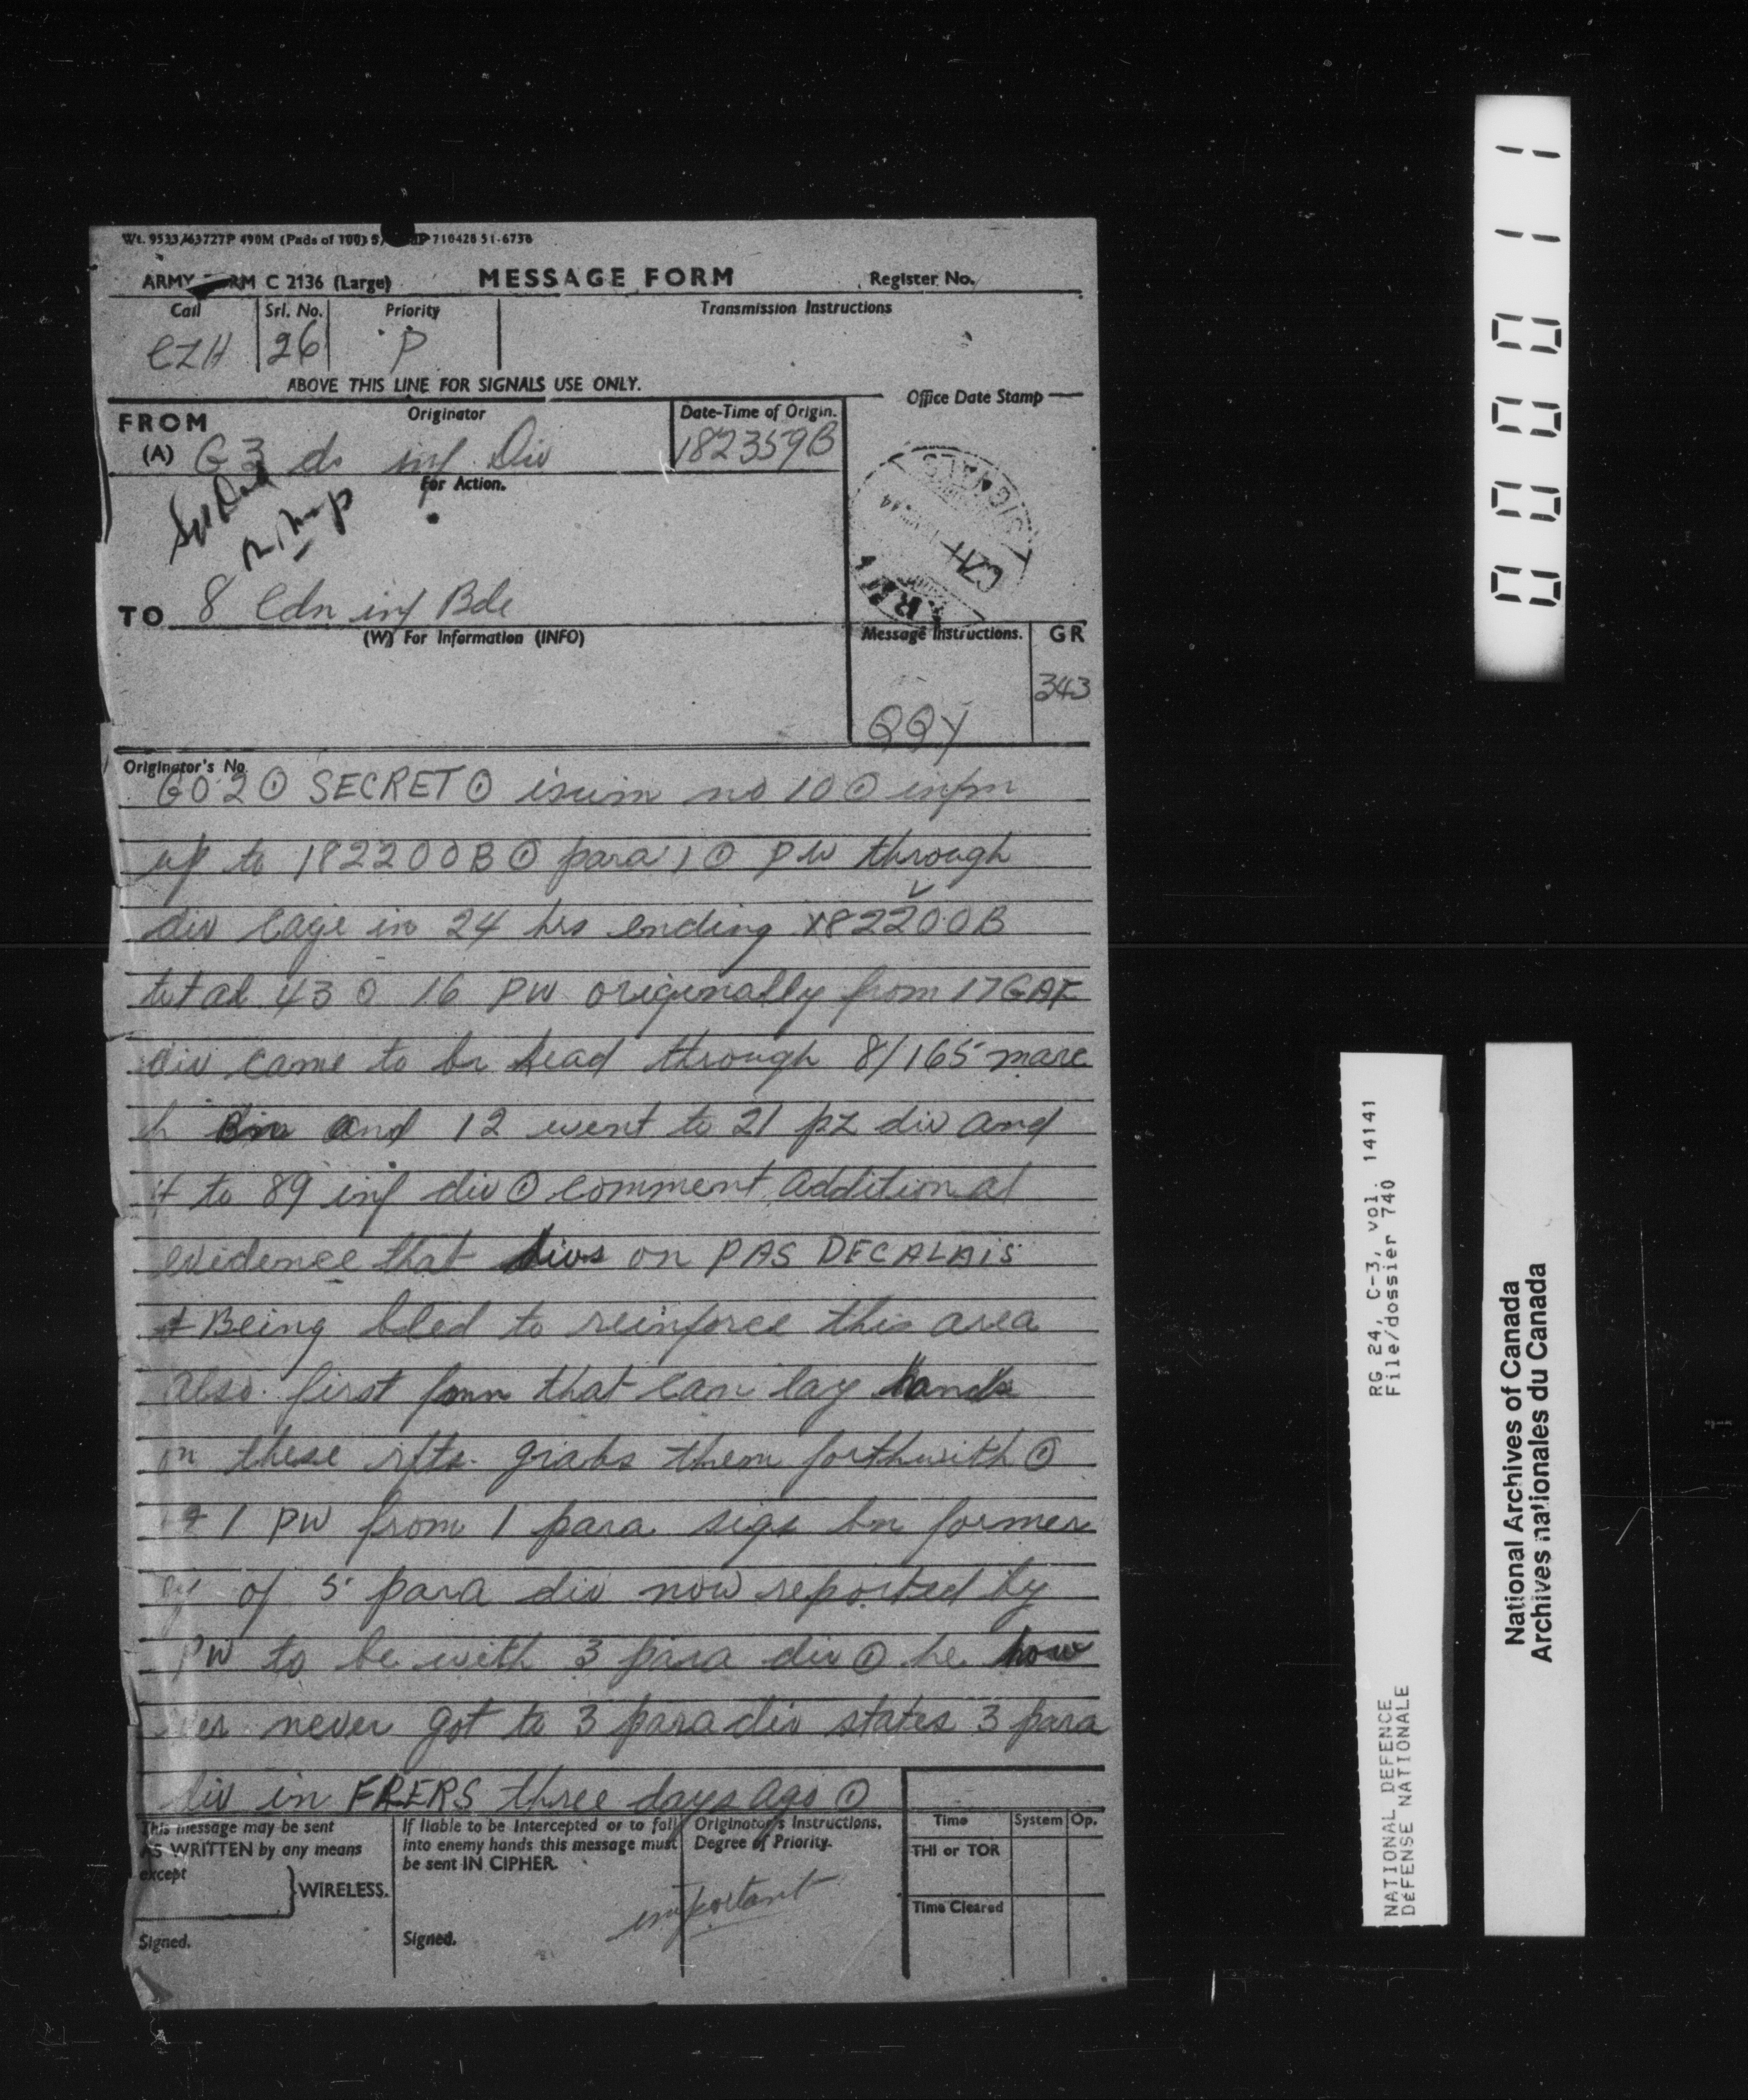 Wt. 9533/63727P 490M (Pads of 100) 710428 51-6736
ARMY FORM C 2136 (Large) MESSAGE FORM Register No.
Call Srl. No. Priority Transmission Instructions
CZH 26 P
ABOVE THIS LINE FOR SIGNALS USE ONLY.
Office Date Stamp
FROM Originator Date-Time of Origin.
(A) G 3 inf Div 182359B
For Action.
SIGNALS
CZH
TO 8 Cdn inf Bde
(W) For Information (INFO) Message Instructions. GR
343
QQY
Originator's No
GO 2 ⊙ SECRET ⊙ isum no 10 ⊙ infm
up to 182200B ⊙ para 1 ⊙ PW through
div cage in 24 hrs ending 182200B
total 43 ⊙ 16 PW originally from 17 GAF
div came to br head through 8/165 marc
h Bn and 12 went to 21 pz div and
4 to 89 inf div ⊙ comment additional
evidence that divs on PAS DECALAIS
Being bled to reinforce this area
also first fmn that can lay hands
on these rfts grabs them forthwith ⊙
1 PW from 1 para sigs bn former
ly of 5 para div now reported by
PW to be with 3 para div ⊙ he how
ever never got to 3 para div states 3 para
div in FRERS three days ago ⊙
This message may be sent If liable to be intercepted or to fall Originator's Instructions. Time System Op.
AS WRITTEN by any means into enemy hands this message must Degree of Priority. THI or TOR
except be sent IN CIPHER.
WIRELESS. important Time Cleared
Signed. Signed.
0000011
RG 24, C-3, vol. 14141
File/dossier 740
NATIONAL DEFENCE
DÉFENSE NATIONALE
National Archives of Canada
Archives nationales du Canada